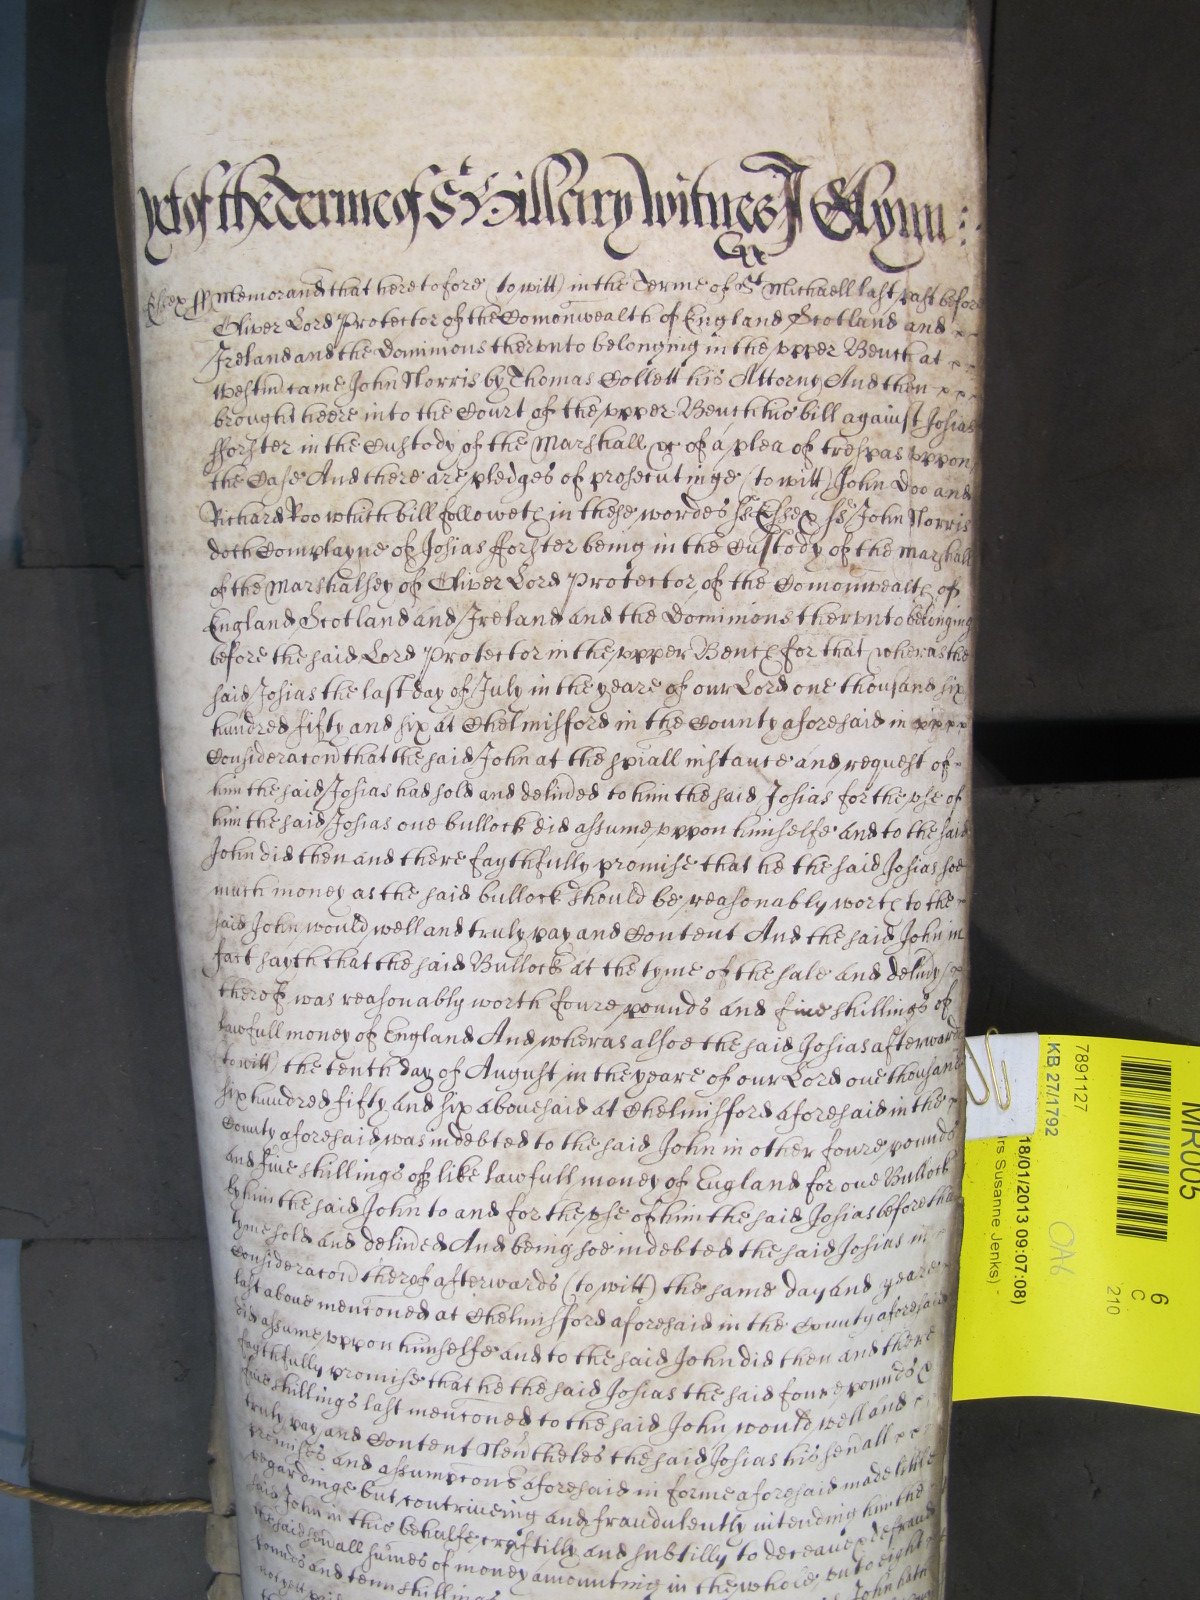 yet of the Terme of St Hillary Witnes J Glynn
Essex ss Memorand that heretofore (to witt) in the Terme of St Michaell last past before
Oliver Lord Protector of the Comonwealth of England Scotland and
Ireland and the Dominions therunto belonging in the upper Bench at
Westm came John Norris by Thomas Collett his Attorny And then
brought heere into the Court of the upper Bench his bill against Josias
fforster in the Custody of the Marshall &c of a plea of trespas uppon
the Case And there are pledges of prosecutinge (to witt) John Doo and
Richard Roo which bill followeth in these wordes ss Essex ss John Norris
doth Complayne of Josias fforster being in the Custody of the marshall
of the Marshalsey of Oliver Lord Protector of the Comonwealth of
England Scotland and Ireland and the Dominions therunto belonging
before the said Lord Protector in the upper Bench for that wheras the
said Josias the last day of July in the yeare of our Lord one thousand six
hundred fifty and six at Chelmisford in the County aforesaid in
Consideracon that the said John at the spiall instance and request of
him the said Josias had sold and delived to him the said Josias for the use of
him the said Josias one bullock did assume uppon himselfe and to the said
John did then and there faythfully promise that he the said Josias soe
much money as the said bullock should be reasonably worth to the
said John would well and truly pay and Content And the said John in
fact sayth that the said Bullock at the tyme of the sale and delivy
therof was reasonably worth foure pounds and five shillings of
lawfull money of England And wheras alsoe the said Josias afterwards
(to witt) the tenth day of August in the yeare of our Lord one thousand
six hundred fifty and six abovesaid at Chelmisford aforesaid in the
County aforesaid was indebted to the said John in other foure pounds
and five shillings of like lawfull money of England for one Bullock
by him the said John to and for the use of him the said Josias before that
tyme sold and delived And being soe indebted the said Josias in
Consideracon therof afterwards (to witt) the same day and yeare
last above mentoned at Chelmisford aforesaid in the County aforesaid
did assume uppon himselfe and to the said John did then and there
faythfully promise that he the said Josias the said foure pounds &
five shillings last mentoned to the said John would well and
truly pay and Content Nevtheles the said Josias his sevall
promises and assumptons aforesaid in forme aforesaid made little
regardinge but contriveing and fraudulently intending him the
said John in this behalfe craftilly and subtilly to deceave & defraud
the said sevall sumes of money amounting in the whole unto eight
pounds and tenn shillings John hath
not yett paid
MR005
7891127
KB 27/1792
18/01/2013 09:07:08)
rs Susanne Jenks) -
OA6
6
C
210